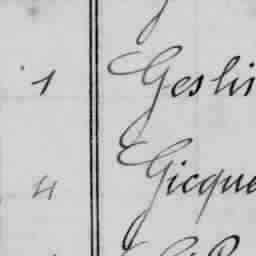 1 Geslin
4 Gicque